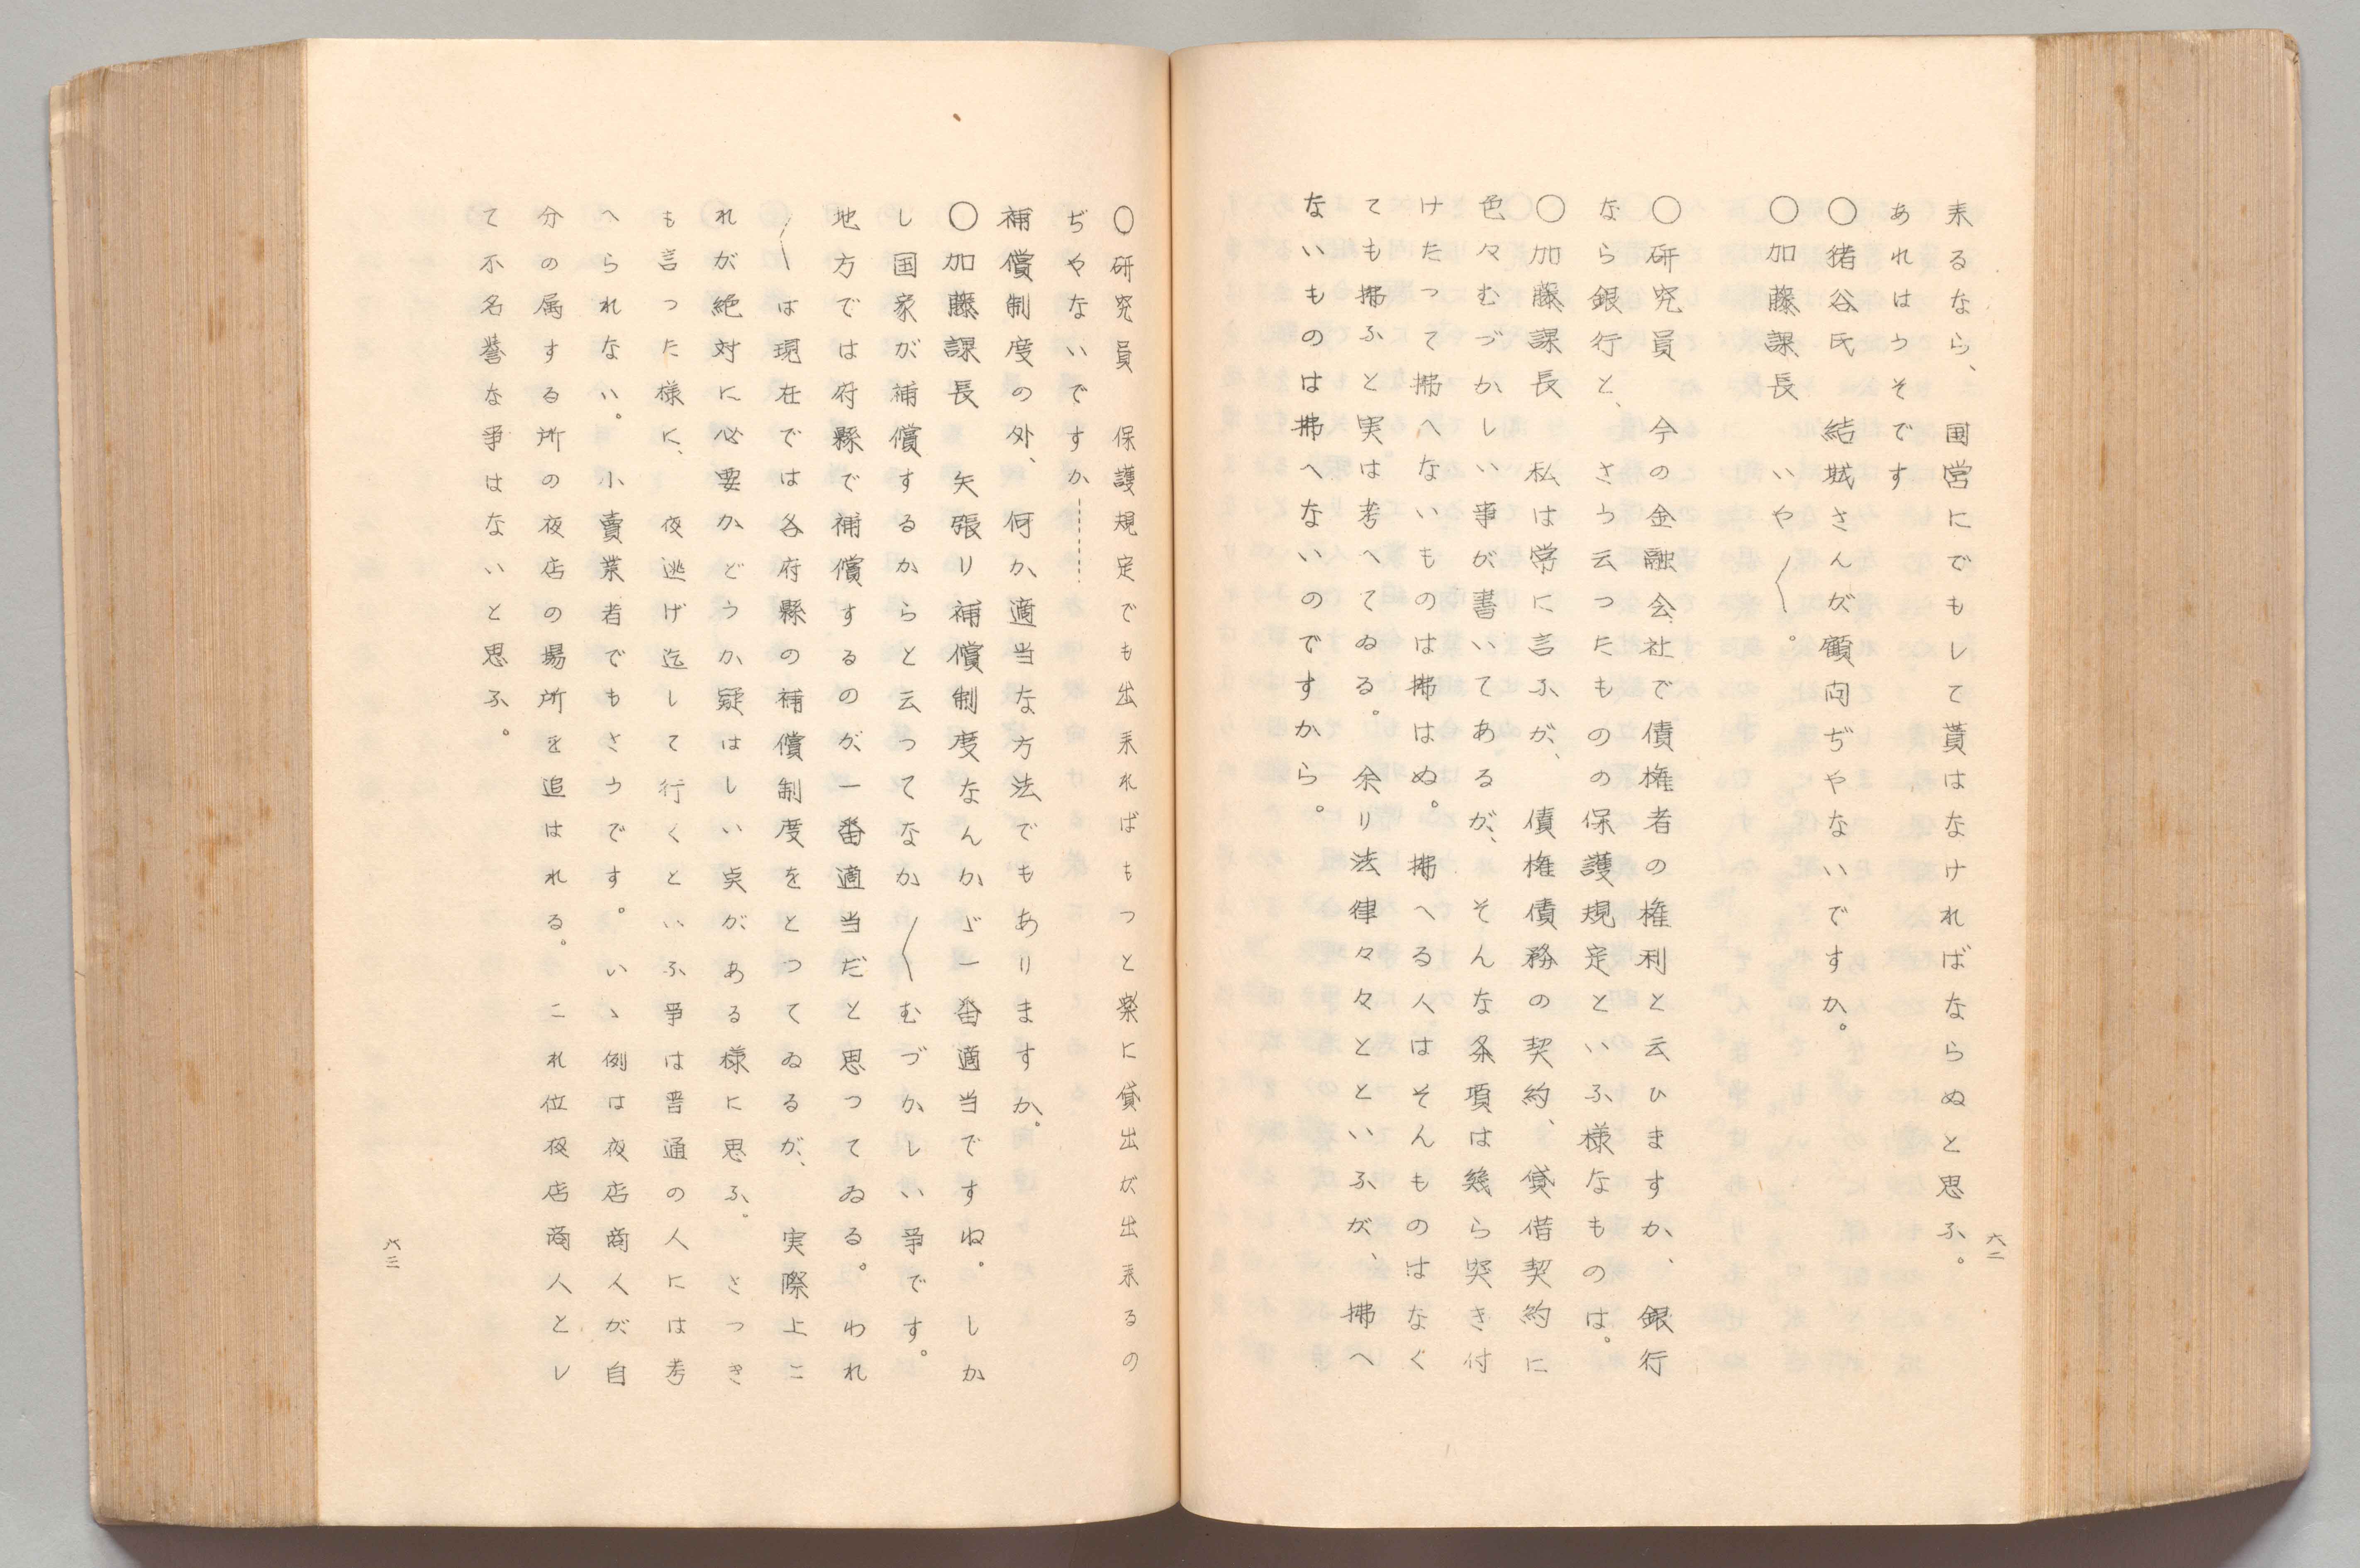 六二
来るなら、国営にでもして貰はなければならぬと思ふ。
あれはうそです
〇猪谷氏　結城さんが顧問ぢやないですか。
〇加藤課長　いや〱。
〇研究員　今の金融会社で債権者の権利と云ひますか、銀行
なら銀行と、さう云つたものの保護規定といふ様なものは。
〇加藤課長　私は常に言ふが、債権債務の契約、貸借契約に
色々むづかしい事が書いてあるが、そんな条項は幾ら突き付
けたつて拂へないものは拂はぬ。拂へる人はそんものはなぐ
ても拂ふと実は考へてゐる。余り法律々々といふが、拂へ
ないものは拂へないのですから。
〇研究員　保護規定でも出来ればもつと楽に貸出が出来るの
ぢやないですか------
補償制度の外、何か適当な方法でもありますか。
〇加藤課長　矢張り補償制度なんかゞ一番適当ですね。しか
し国家が補償するからと云つてなか〱むづかしい事です。
地方では府縣で補償するのが一番適当だと思つてゐる。われ
〱は現在では各府縣の補償制度をとつてゐるが、実際上こ
れが絶対に必要かどうか疑はしい点がある様に思ふ。さつき
も言つた様に、夜逃げ迄して行くといふ事は普通の人には考
へられない。小賣業者でもさうです。いゝ例は夜店商人が自
分の属する所の夜店の場所を追はれる。これ位夜店商人とし
て不名誉な事はないと思ふ。
六三